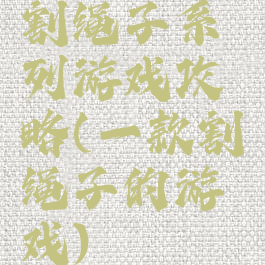 割绳子系
列游戏攻
略(一款割
绳子的游
戏)